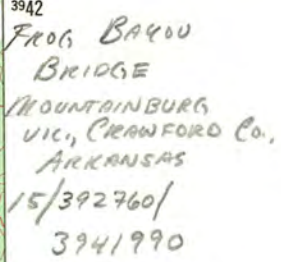 3942
FROG BAYOU
BRIDGE
MOUNTAINBURG
VIC., CRAWFORD CO.,
ARKANSAS
15/392760/
3941990